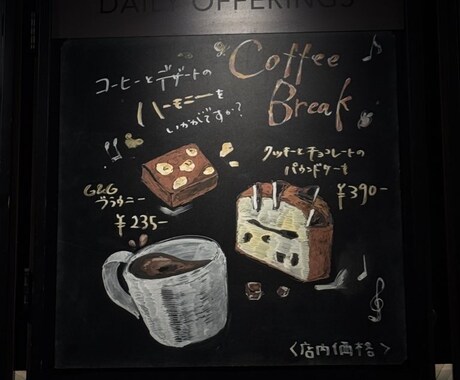 DAILY OFFERINGS
Coffee
Break
コーヒーとデザートの
ハーモニーを
いかがですか?
クッキーとチョコレートの
パウンドケーキ
¥390-
G&G
ブラウニー
¥235-
<店内価格>